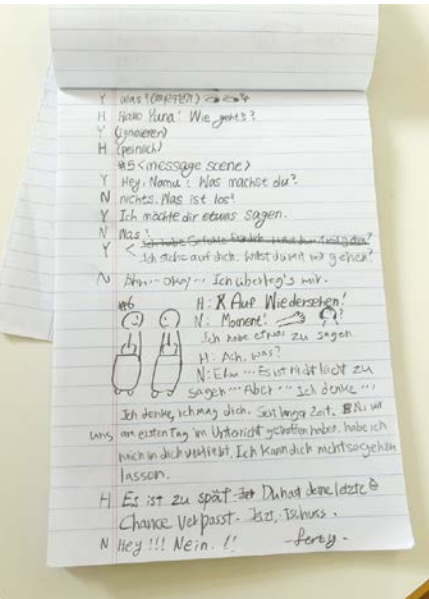 Y Was?
H Hallo Yuna! Wie geht's?
Y (ignorieren)
H (peinlich)
#5 <message scene>
Y Hey, Namu! Was machst du?
N nichts. Was ist los?
Y Ich möchte dir etwas sagen.
N Was?
Y < Ich habe Gefühle
Ich stehe auf dich. Willst du mit mir gehen?
N Ahm... Okay... Ich überleg's mir.
#6 H: Auf Wiedersehen!
N: Moment! ?
Ich habe etwas zu sagen
H: Ach, was?
N: Ehm... Es ist nicht leicht zu
sagen... Aber... Ich denke...
Ich denke, ich mag dich. Seit langer Zeit. Als wir
uns am ersten Tag im Unterricht getroffen haben, habe ich
mich in dich verliebt. Ich kann dich nicht so gehen
lassen.
H Es ist zu spät. Du hast deine letzte
Chance verpasst. Jetzt, Tschuss.
N Hey!!! Nein.!!
-fertig-